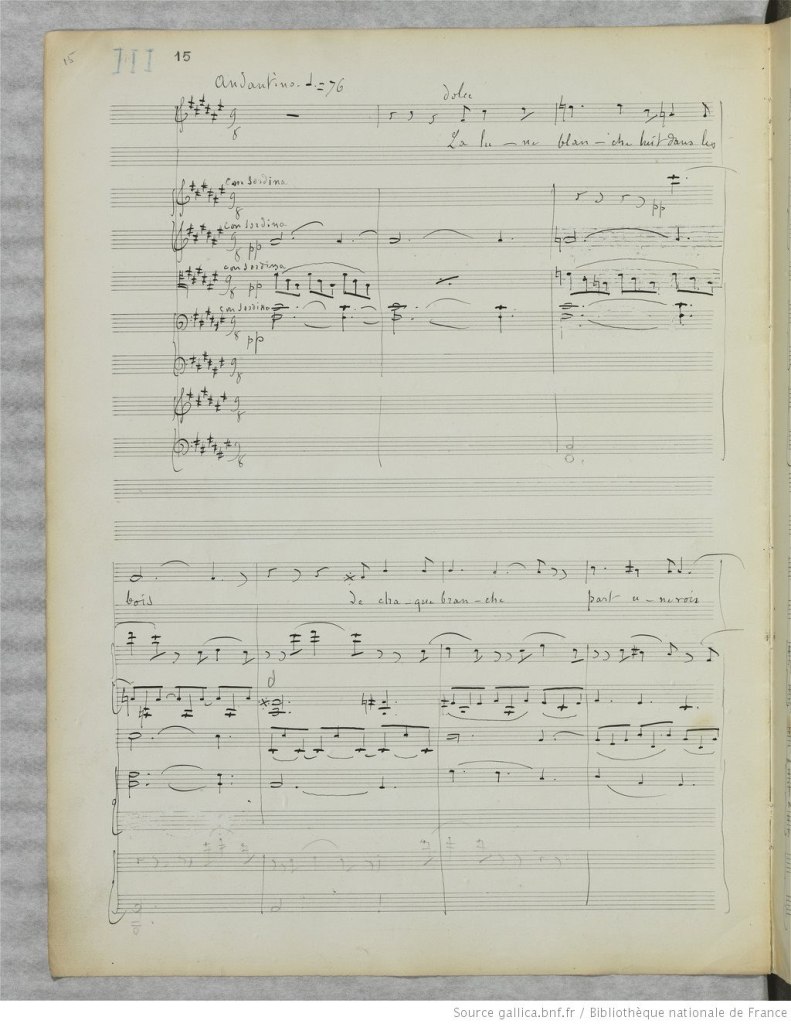 15 III 15
Andantino. ♩. = 76
dolce
La lu - ne blan - che luit dans les
con sordina
con sordina
pp
pp
con sordina
pp
con sordina
pp
bois de cha - que bran - che part u - ne voix
Source gallica.bnf.fr / Bibliothèque nationale de France